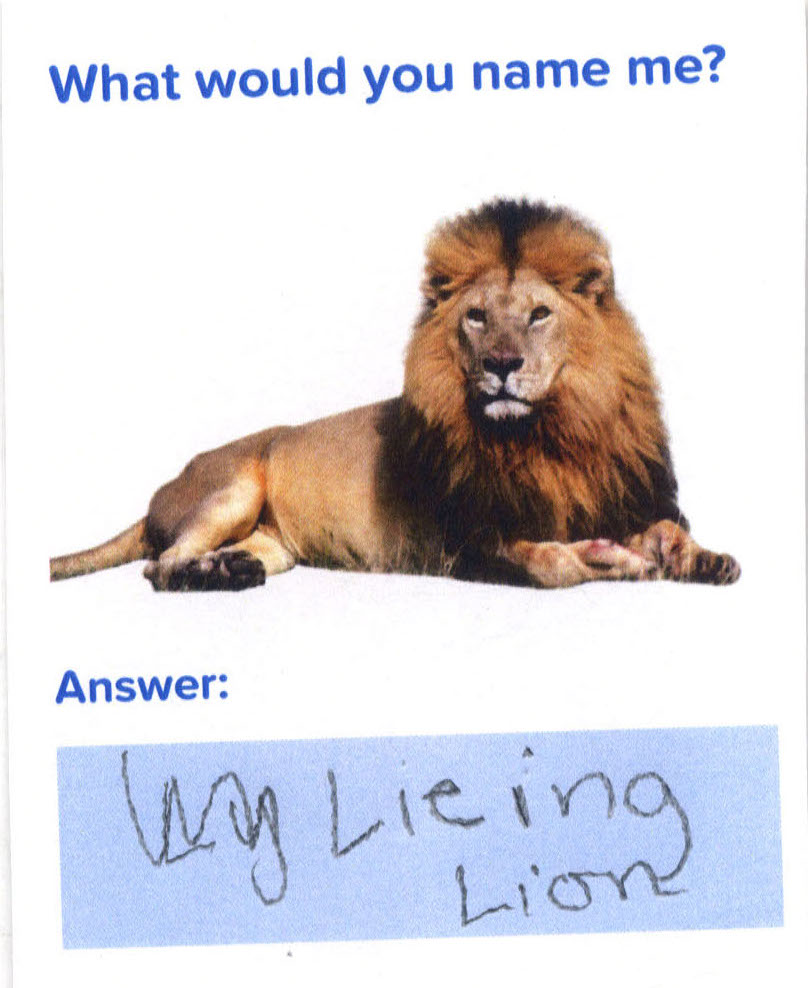 What would you name me?
Answer:
Lieing
Lion